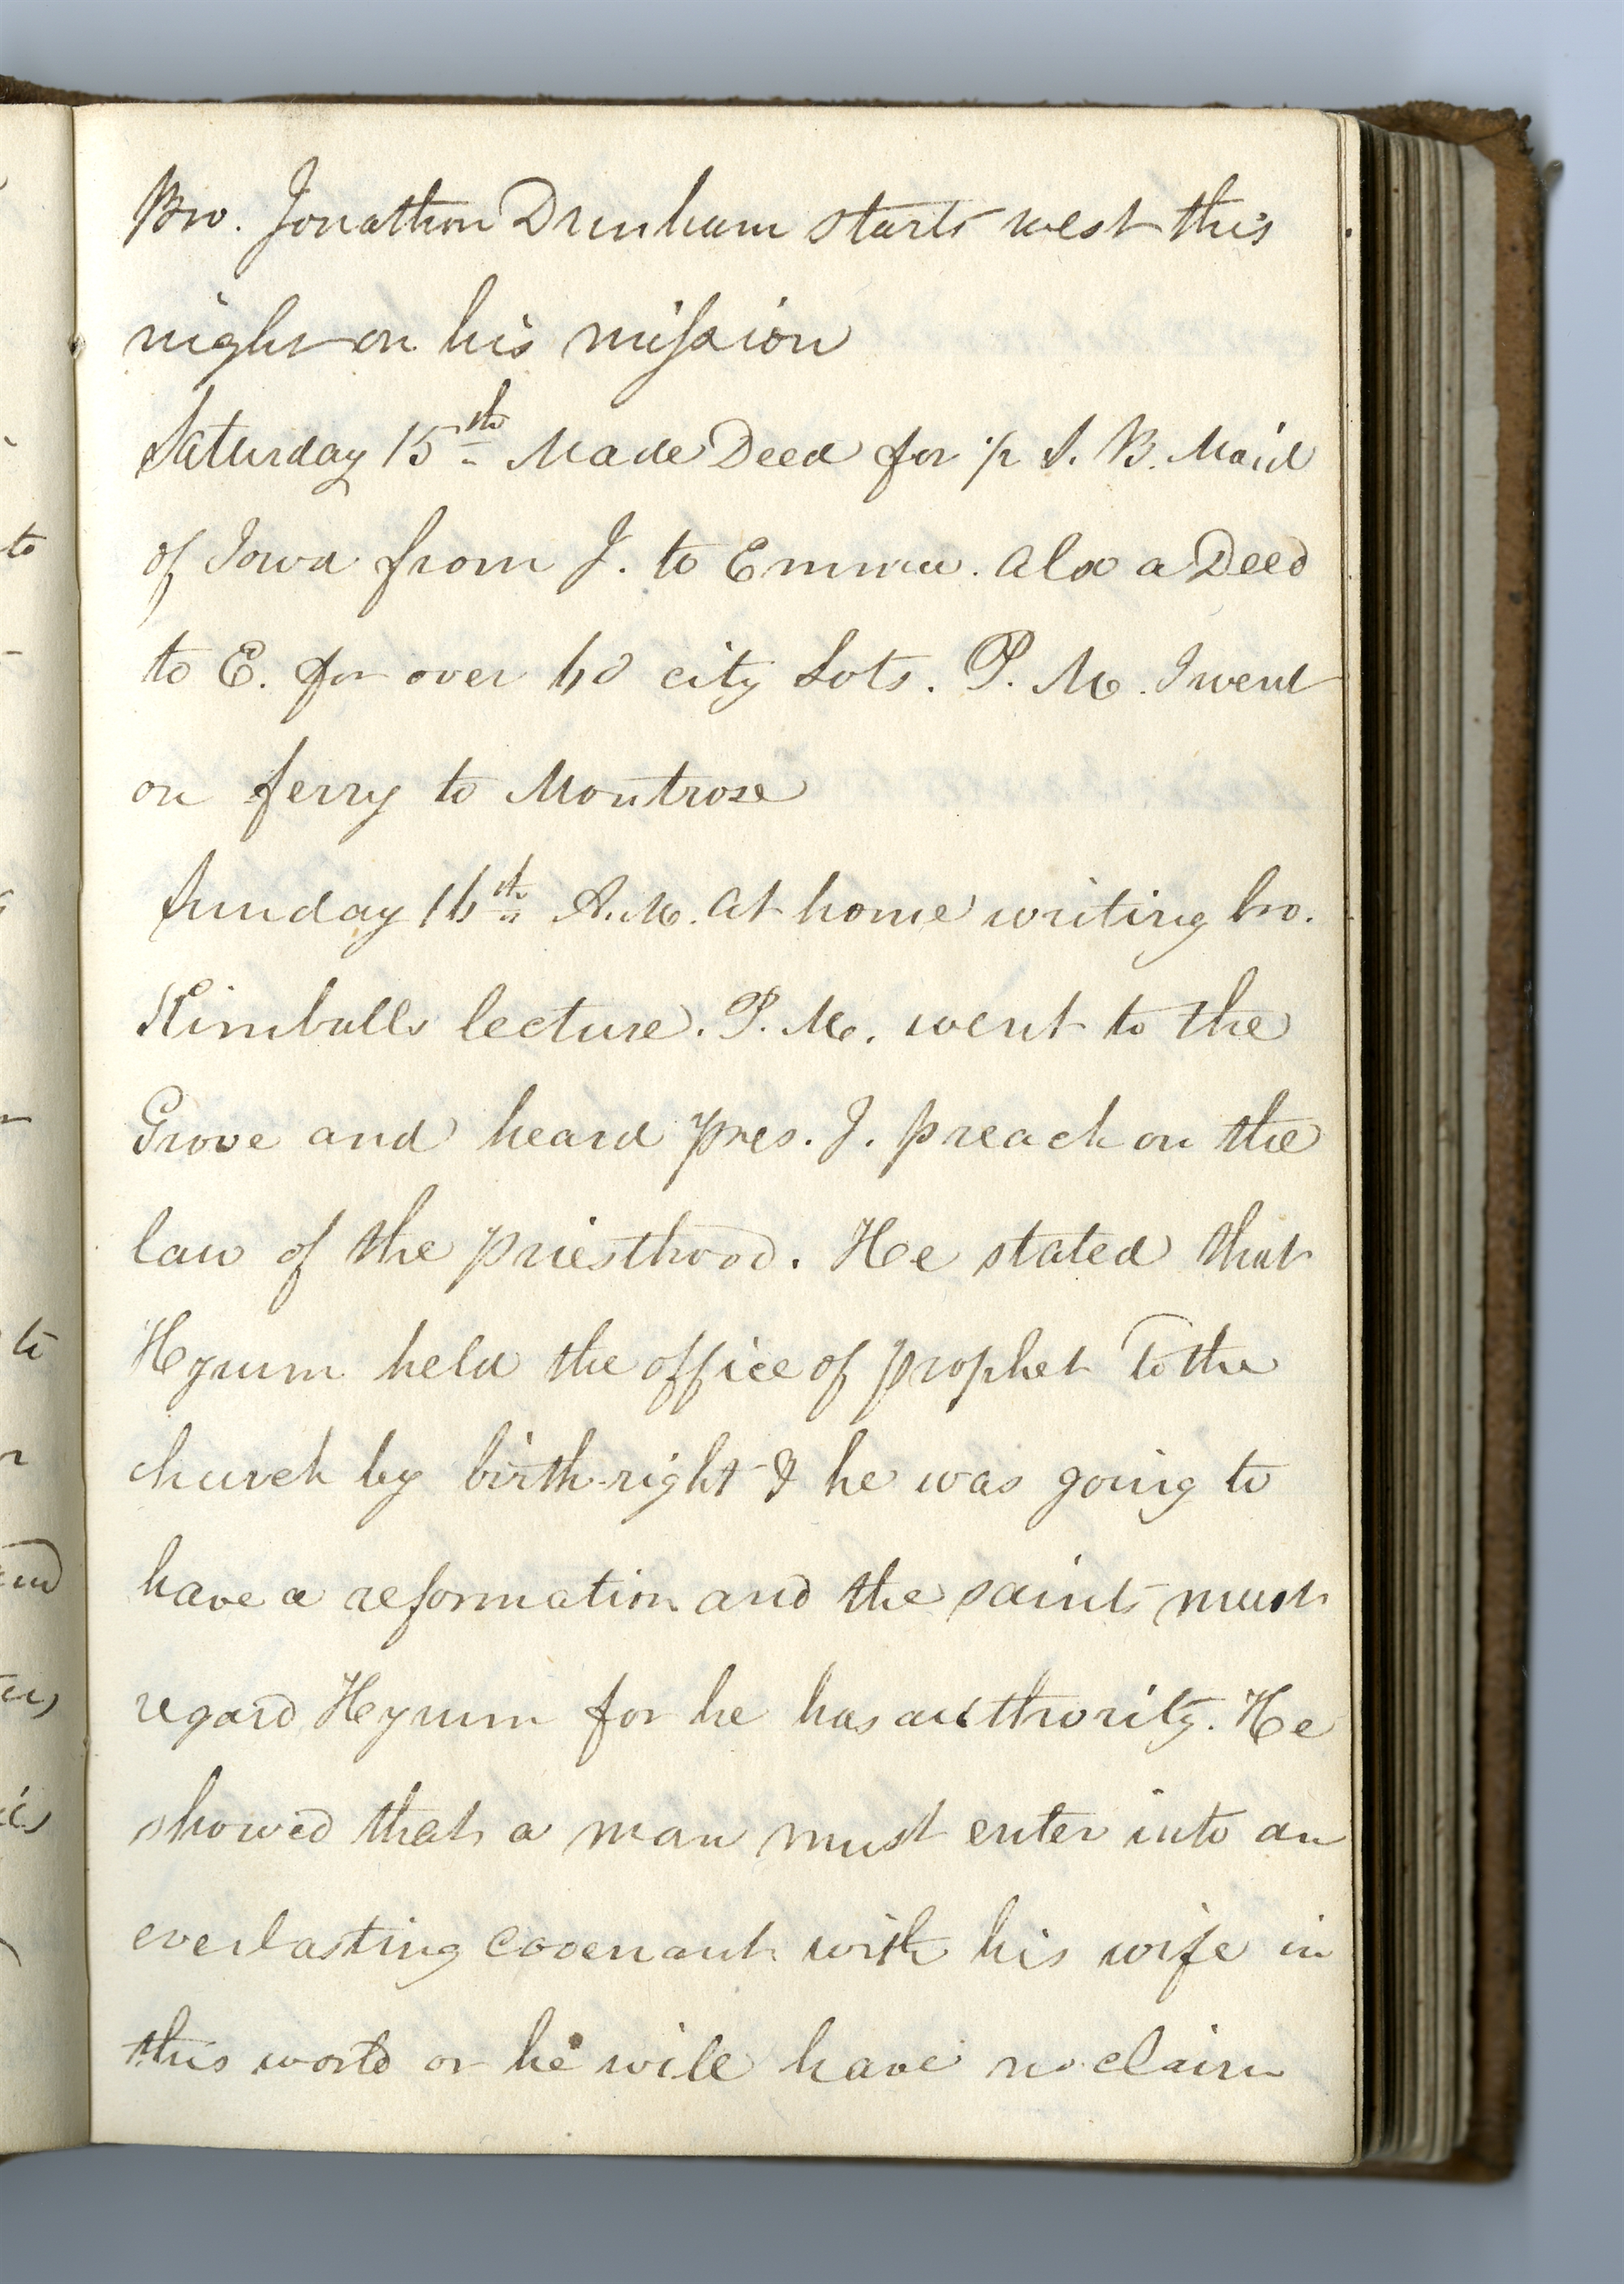 Bro. Jonathon Dunham starts west this
night on his mission
Saturday 15th Made Deed for ½ S. B. Maid
of Iowa from J. to Emma. also a Deed
to E. for over 60 city Lots. P. M. I went
on ferry to Montrose
Sunday 16th A.M. At home writing bro.
Kimballs lecture. P. M. went to the
Grove and heard pres. J. preach on the
law of the priesthood. He stated that
Hyrum held the office of prophet to the
church by birth-right & he was going to
have a reformation and the saints must
regard Hyrum for he has authority. He
showed that a man must enter into an
everlasting covenant with his wife in
this world or he will have no claim